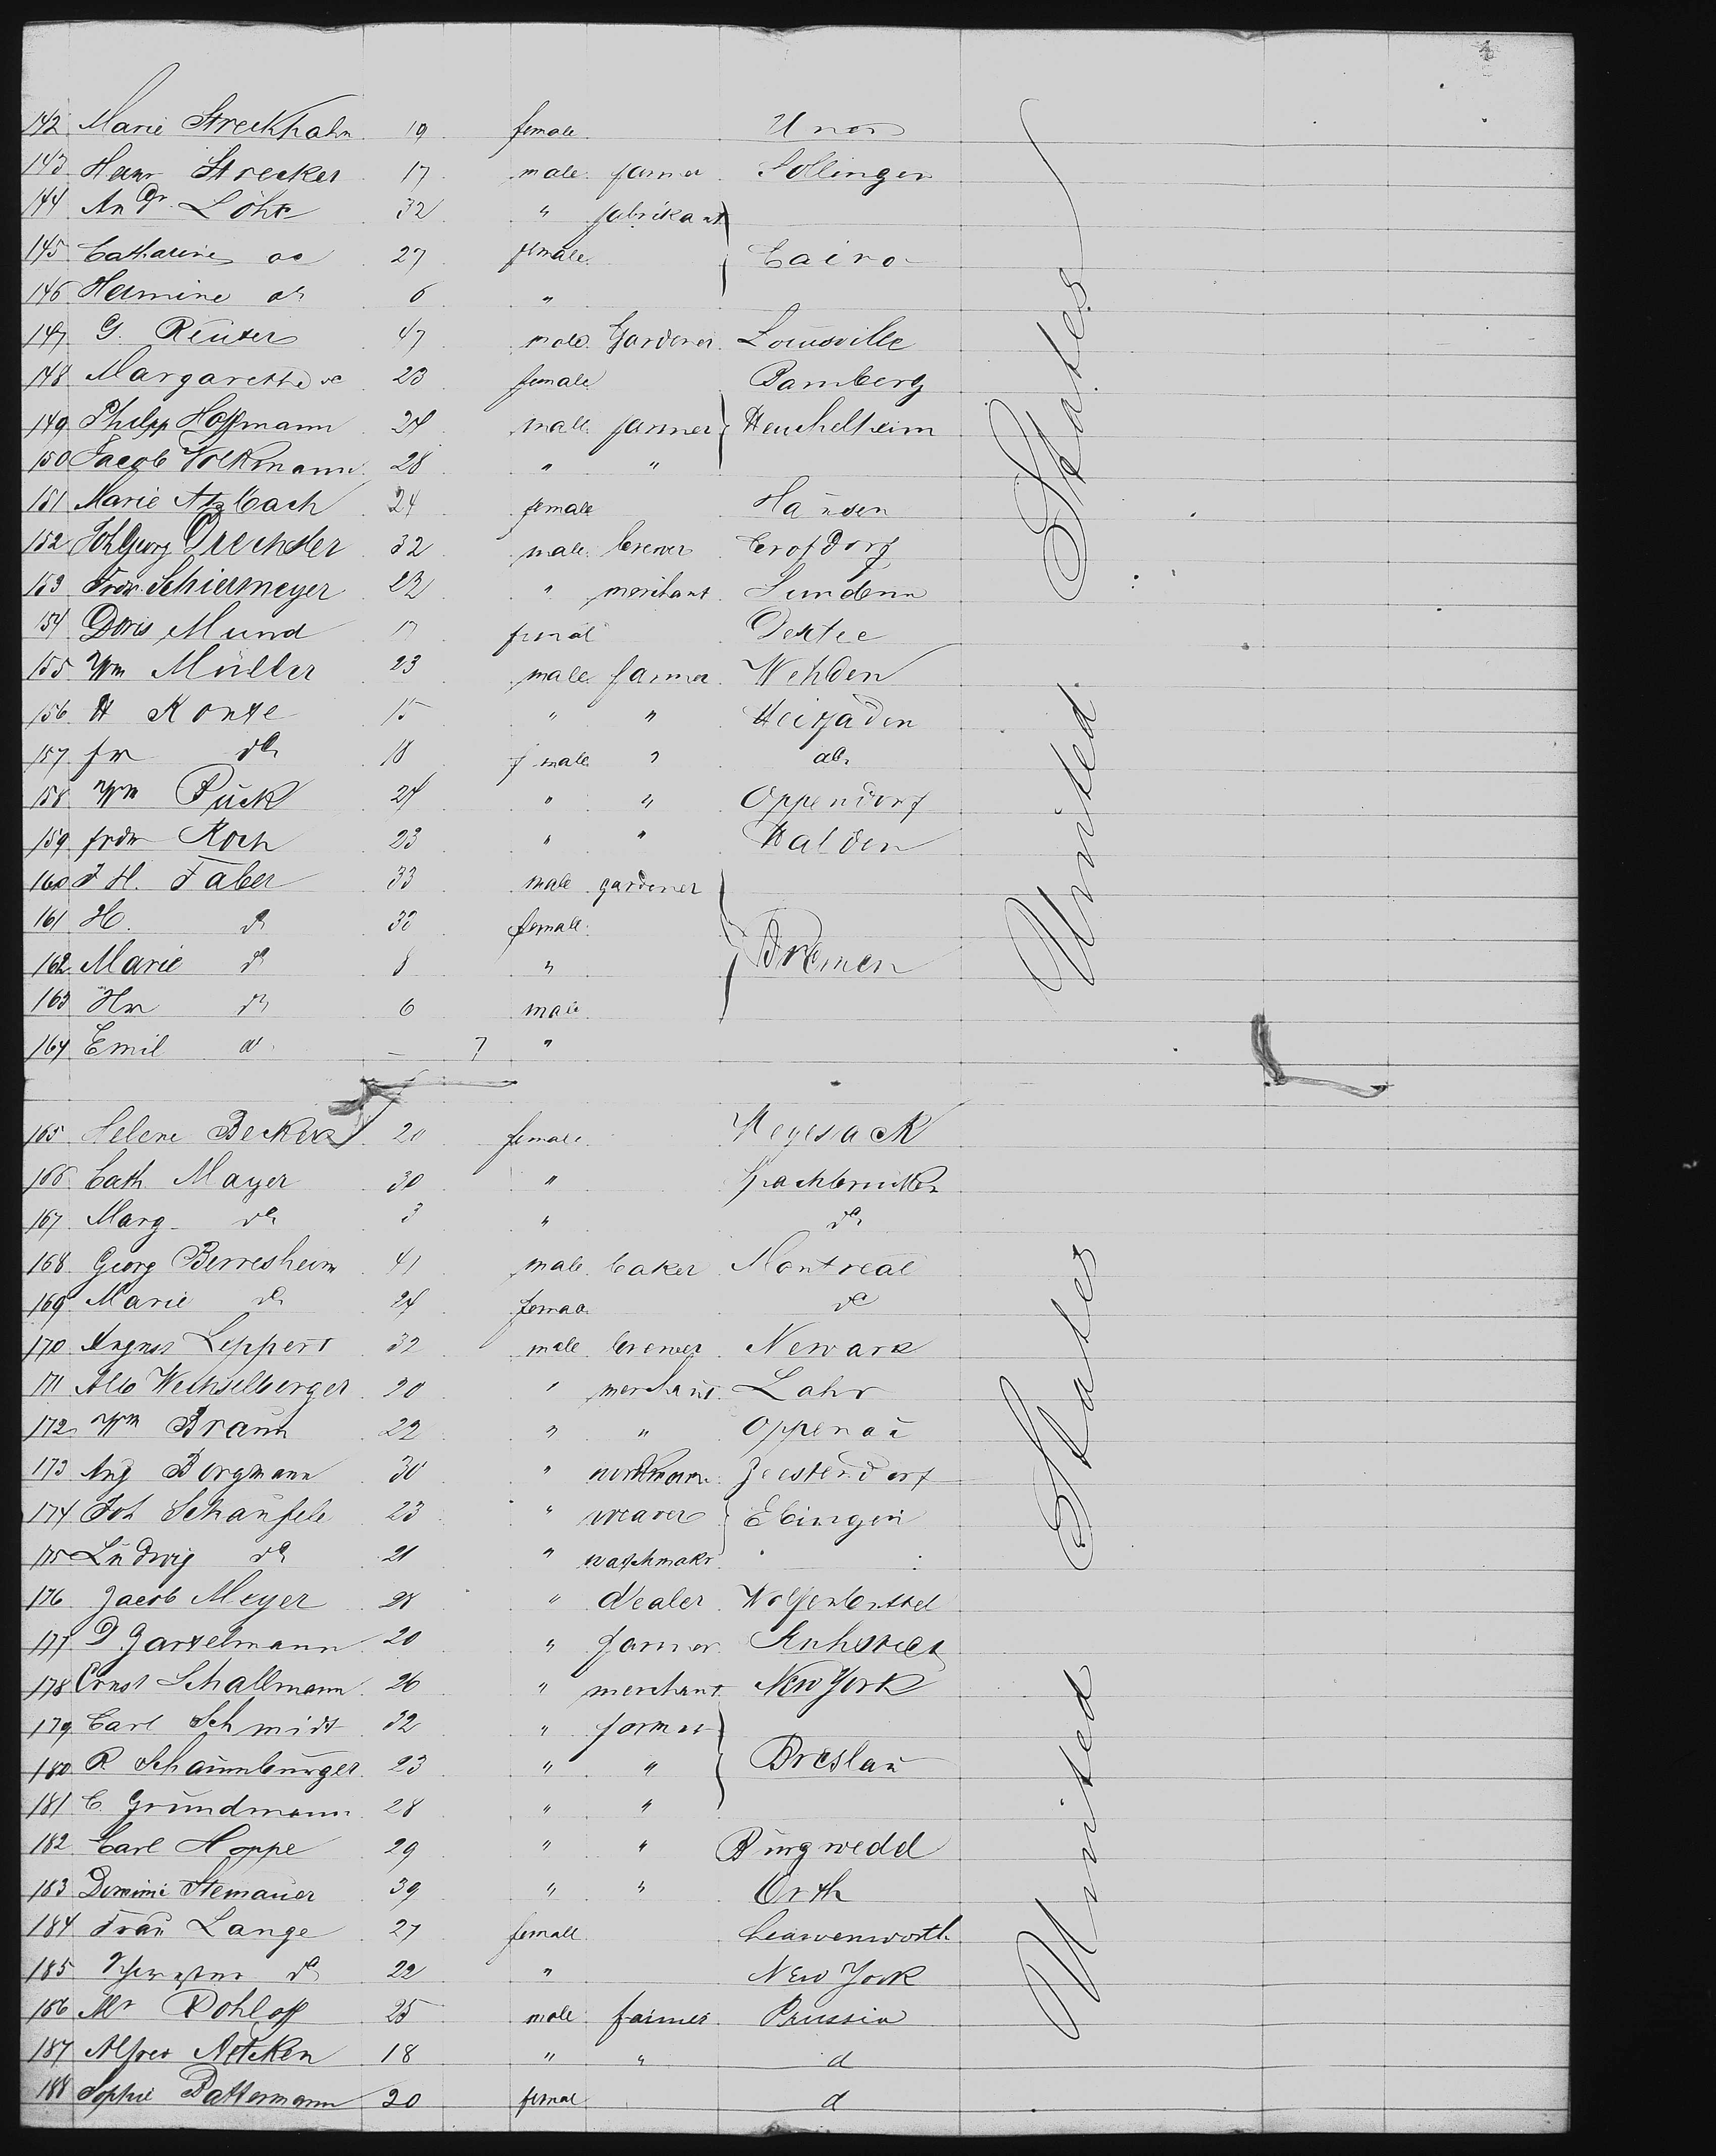 142 Marie Streckhahn 19 female
143 Heinr Strecker 17 male farmer Sollingen
144 And. Löhr 32 " fabrikant
145 Catharine do 27 female Cairo
146 Hermine do 6 "
147 G. Reuter 47 male Gardener Louisville
148 Margarethe do 23 female Bamberg
149 Philipp Hoffmann 24 male farmer Heuchelheim
150 Jacob Volkmann 28 " "
151 Marie Atzbach 24 female Hausen
152 Joh Georg Drechsler 32 male brewer Crofdorf
153 Frdr. Schiermeyer 22 " merchant Sundern
154 Doris Mund 17 femal
155 Wm Müller 23 male farmer Wehden
156 H Konte 15 " "
157 fr do 18 f male " do
158 Wm Puck 24 " " Oppendorf
159 frdr Koch 23 " " Walden
160 J H. Faber 33 male gardener
161 H. do 32 female Bremen
162 Marie do 8 "
163 Hr do 6 male
164 Emil do — 7 "
165 Helene Becker 20 female Vegesack
166 Cath Mayer 30 " Spachbrücken
167 Marg. do 3 " do
168 Georg Berresheim 41 male baker Montreal
169 Marie do 24 female do
170 August Leppert 32 male brewer Newark
171 Alb Wechselberger 20 " merchant Lahr
172 Wm Braun 22 " " Oppenau
173 Aug Borgmann 30 " workmann Geestendorf
174 Joh Schaufele 23 " weaver Ebingen
175 Ludwig do 21 " watchmakr
176 Jacob Meyer 28 " dealer Wolfenbüttel
177 D. Gartelmann 20 " farmer Kuhstedt
178 Ernst Schallmann 26 " merchant New York
179 Carl Schmidt 32 " farmer
180 R Schaumburger 23 " " Breslau
181 C. Grundmann 28 " "
182 Carl Hoppe 29 " " Burgwedel
183 Domini Stemauer 39 " " Orth
184 Frau Lange 27 female Leavenworth
185 do 22 " New York
186 Mr Rohloff 25 male farmer Prussia
187 Alfred Aetcken 18 " " d
188 Sophie Battermann 20 femal d
United States
United States